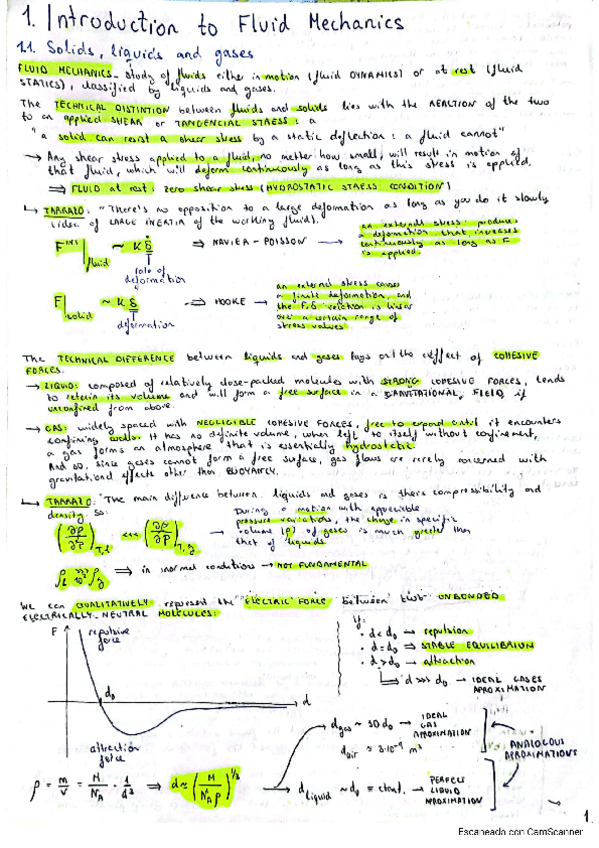 1. Introduction to Fluid Mechanics
1.1. Solids, liquids and gases
FLUID MECHANICS - study of fluids either in motion (fluid DYNAMICS) or at rest (fluid
STATICS), classified by liquids and gases.
The TECHNICAL DISTINTION between fluids and solids lies with the REACTION of the two
to an applied SHEAR or TANGENCIAL STRESS: a
"a solid can resist a shear stress by a static deflection: a fluid cannot"
→ Any shear stress applied to a fluid, no matter how small, will result in motion of
that fluid, which will deform continuously as long as this stress is applied.
⇒ FLUID at rest: zero shear stress (HYDROSTATIC STRESS CONDITION)
↳ TARRAZO: "There's no opposition to a large deformation as long as you do it slowly
(idea of LARGE INERTIA of the working fluid).
F|fluid ~ K δ̇ ⇒ NAVIER - POISSON → an external stress produces
a deformation that increases
continuously as long as F
is applied.
role of
deformation
F|solid ~ K δ ⇒ HOOKE → an external stress causes
a finite deformation, and
the F,δ relation is linear
over a certain range of
stress values
deformation
The TECHNICAL DIFFERENCE between liquids and gases lays on the effect of COHESIVE
FORCES.
→ LIQUID: composed of relatively close-packed molecules with STRONG COHESIVE FORCES, tends
to retain its volume and will form a free surface in a GRAVITATIONAL FIELD if
unconfined from above.
→ GAS: widely spaced with NEGLIGIBLE COHESIVE FORCES, free to expand until it encounters
confining walls. It has no definite volume, when left to itself without confinement,
a gas forms an atmosphere that is essentially hydrostatic.
And so, since gases cannot form a free surface, gas flows are rarely concerned with
gravitational effects other than BUOYANCY.
↳ TARRAZO: The main diffuence between liquids and gases is theirs compressibility and
density. So:
(∂ρ/∂P)T,l <<< (∂ρ/∂P)T,g → During a motion with appreciable
pressure variations, the change in specific
volume (ρ) of gases is much greater than
that of liquids
ρl >>> ρg ⇒ in normal conditions → NOT FUNDAMENTAL
We can QUALITATIVELY represent the "ELECTRIC" FORCE between two UNBONDED
ELECTRICALLY-NEUTRAL MOLECULES:
F
repulsive
force
d₀
d
attraction
force
If:
· d < d₀ → repulsion
· d = d₀ ⇒ STABLE EQUILIBRIUM
· d > d₀ → attraction
↳ d >>> d₀ → IDEAL GASES
APROXIMATION
dgas ~ 10 d₀ → IDEAL
GAS
APROXIMATION
ANALOGOUS
APROXIMATIONS
ρ = m/V = M/NA · 1/d³ ⇒ d ≈ (M/NA ρ)^1/3
dliquid ~ d₀ ≡ const. → PERFECT
LIQUID
APROXIMATION
1
Escaneado con CamScanner